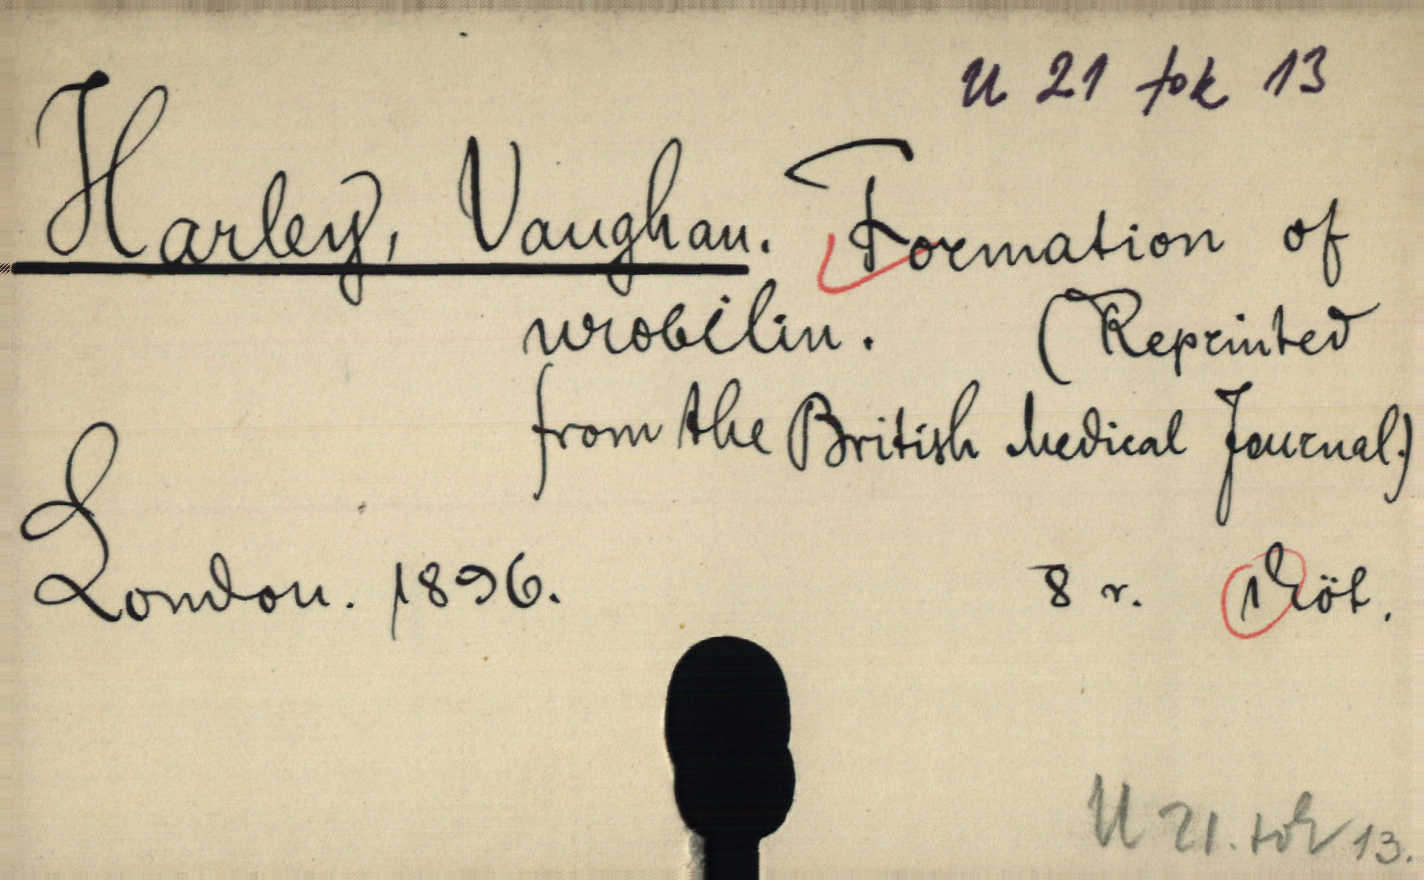 U 21 tok 13
Harley, Vaughan. Formation of
urobilin. (Reprinted
from the British Medical Journal.)
London. 1896. 8 r. 1 köt.
U 21. tok 13.